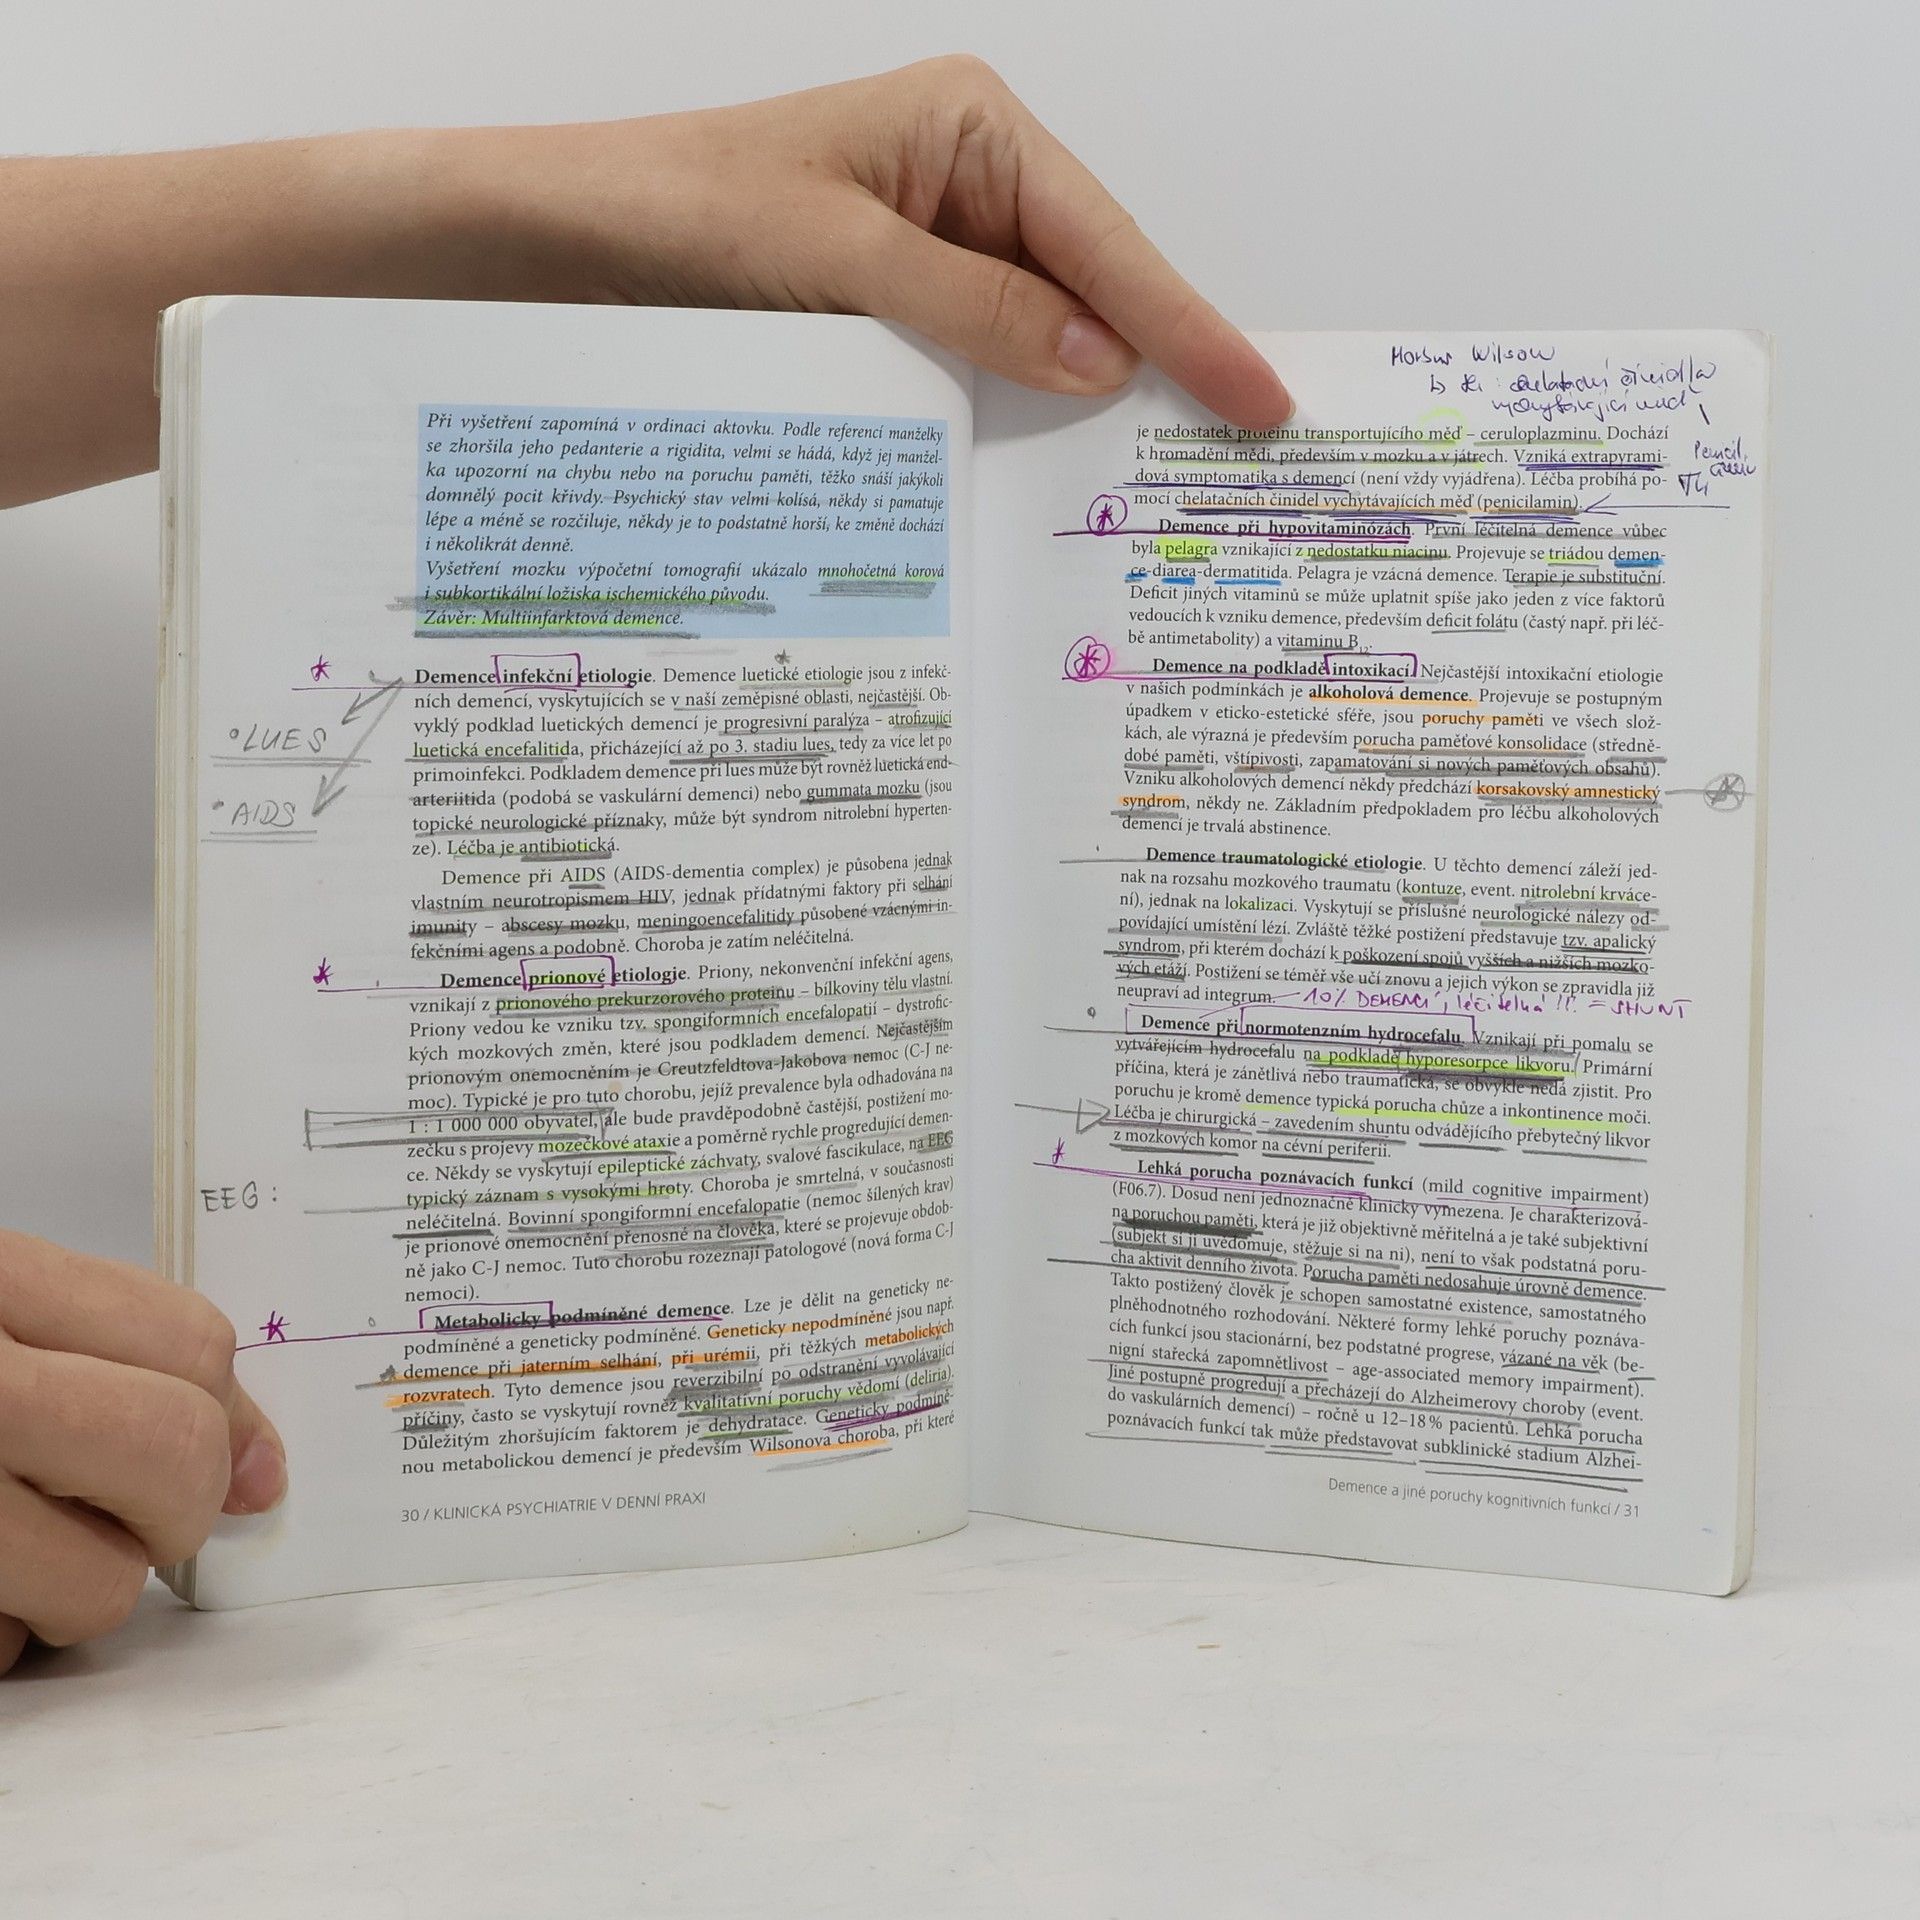 Při vyšetření zapomíná v ordinaci aktovku. Podle referencí manželky
se zhoršila jeho pedanterie a rigidita, velmi se hádá, když jej manžel-
ka upozorní na chybu nebo na poruchu paměti, těžko snáší jakýkoli
domnělý pocit křivdy. Psychický stav velmi kolísá, někdy si pamatuje
lépe a méně se rozčiluje, někdy je to podstatně horší, ke změně dochází
i několikrát denně.
Vyšetření mozku výpočetní tomografií ukázalo mnohočetná korová
i subkortikální ložiska ischemického původu.
Závěr: Multiinfarktová demence.
Demence infekční etiologie. Demence luetické etiologie jsou z infekč-
ních demencí, vyskytujících se v naší zeměpisné oblasti, nejčastější. Ob-
vyklý podklad luetických demencí je progresivní paralýza – atrofizující
luetická encefalitida, přicházející až po 3. stadiu lues, tedy za více let po
primoinfekci. Podkladem demence při lues může být rovněž luetická end-
arteriitida (podobá se vaskulární demenci) nebo gummata mozku (jsou
topické neurologické příznaky, může být syndrom nitrolební hyperten-
ze). Léčba je antibiotická.
• LUES
• AIDS
Demence při AIDS (AIDS-dementia complex) je působena jednak
vlastním neurotropismem HIV, jednak přídatnými faktory při selhání
imunity – abscesy mozku, meningoencefalitidy působené vzácnými in-
fekčními agens a podobně. Choroba je zatím neléčitelná.
Demence prionové etiologie. Priony, nekonvenční infekční agens,
vznikají z prionového prekurzorového proteinu – bílkoviny tělu vlastní.
Priony vedou ke vzniku tzv. spongiformních encefalopatií – dystrofic-
kých mozkových změn, které jsou podkladem demencí. Nejčastějším
prionovým onemocněním je Creutzfeldtova-Jakobova nemoc (C-J ne-
moc). Typické je pro tuto chorobu, jejíž prevalence byla odhadována na
1 : 1 000 000 obyvatel, ale bude pravděpodobně častější, postižení mo-
zečku s projevy mozečkové ataxie a poměrně rychle progredující demen-
ce. Někdy se vyskytují epileptické záchvaty, svalové fascikulace, na EEG
typický záznam s vysokými hroty. Choroba je smrtelná, v současnosti
neléčitelná. Bovinní spongiformní encefalopatie (nemoc šílených krav)
je prionové onemocnění přenosné na člověka, které se projevuje obdob-
ně jako C-J nemoc. Tuto chorobu rozeznají patologové (nová forma C-J
nemoci).
EEG :
Metabolicky podmíněné demence. Lze je dělit na geneticky ne-
podmíněné a geneticky podmíněné. Geneticky nepodmíněné jsou např.
demence při jaterním selhání, při urémii, při těžkých metabolických
rozvratech. Tyto demence jsou reverzibilní po odstranění vyvolávající
příčiny, často se vyskytují rovněž kvalitativní poruchy vědomí (deliria).
Důležitým zhoršujícím faktorem je dehydratace. Geneticky podmíně-
nou metabolickou demencí je především Wilsonova choroba, při které
30 / KLINICKÁ PSYCHIATRIE V DENNÍ PRAXI
Morbus Wilson
chelatační činidla
vychytávající měď
je nedostatek proteinu transportujícího měď – ceruloplazminu. Dochází
k hromadění mědi, především v mozku a v játrech. Vzniká extrapyrami-
dová symptomatika s demencí (není vždy vyjádřena). Léčba probíhá po-
mocí chelatačních činidel vychytávajících měď (penicilamin).
Demence při hypovitaminózách. První léčitelná demence vůbec
byla pelagra vznikající z nedostatku niacinu. Projevuje se triádou demen-
ce-diarea-dermatitida. Pelagra je vzácná demence. Terapie je substituční.
Deficit jiných vitaminů se může uplatnit spíše jako jeden z více faktorů
vedoucích k vzniku demence, především deficit folátu (častý např. při léč-
bě antimetabolity) a vitaminu B12.
Demence na podkladě intoxikací. Nejčastější intoxikační etiologie
v našich podmínkách je alkoholová demence. Projevuje se postupným
úpadkem v eticko-estetické sféře, jsou poruchy paměti ve všech slož-
kách, ale výrazná je především porucha paměťové konsolidace (středně-
dobé paměti, vštípivosti, zapamatování si nových paměťových obsahů).
Vzniku alkoholových demencí někdy předchází korsakovský amnestický
syndrom, někdy ne. Základním předpokladem pro léčbu alkoholových
demencí je trvalá abstinence.
Demence traumatologické etiologie. U těchto demencí záleží jed-
nak na rozsahu mozkového traumatu (kontuze, event. nitrolební krváce-
ní), jednak na lokalizaci. Vyskytují se příslušné neurologické nálezy od-
povídající umístění lézí. Zvláště těžké postižení představuje tzv. apalický
syndrom, při kterém dochází k poškození spojů vyšších a nižších mozko-
vých etáží. Postižení se téměř vše učí znovu a jejich výkon se zpravidla již
neupraví ad integrum. 10% DEMENCÍ, léčitelná !!! = SHUNT
Demence při normotenzním hydrocefalu. Vznikají při pomalu se
vytvářejícím hydrocefalu na podkladě hyporesorpce likvoru. Primární
příčina, která je zánětlivá nebo traumatická, se obvykle nedá zjistit. Pro
poruchu je kromě demence typická porucha chůze a inkontinence moči.
Léčba je chirurgická – zavedením shuntu odvádějícího přebytečný likvor
z mozkových komor na cévní periferii.
Lehká porucha poznávacích funkcí (mild cognitive impairment)
(F06.7). Dosud není jednoznačně klinicky vymezena. Je charakterizová-
na poruchou paměti, která je již objektivně měřitelná a je také subjektivní
(subjekt si ji uvědomuje, stěžuje si na ni), není to však podstatná poru-
cha aktivit denního života. Porucha paměti nedosahuje úrovně demence.
Takto postižený člověk je schopen samostatné existence, samostatného
plnohodnotného rozhodování. Některé formy lehké poruchy poznáva-
cích funkcí jsou stacionární, bez podstatné progrese, vázané na věk (be-
nigní stařecká zapomnětlivost – age-associated memory impairment).
Jiné postupně progredují a přecházejí do Alzheimerovy choroby (event.
do vaskulárních demencí) – ročně u 12–18 % pacientů. Lehká porucha
poznávacích funkcí tak může představovat subklinické stadium Alzhei-
Demence a jiné poruchy kognitivních funkcí / 31